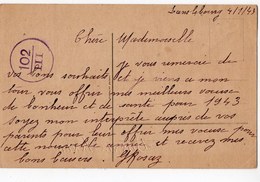 4/1/43
102
Chère Mademoiselle
je vous remercie de
vos bons souhaits et je viens a mon
tour vous offrir mes meilleurs voeux
de bonheur et de santé pour 1943
soyez mon interprète auprès de vos
parents pour leur offrir mes voeux pour
cette nouvelle année et recevez mes
bons baisers